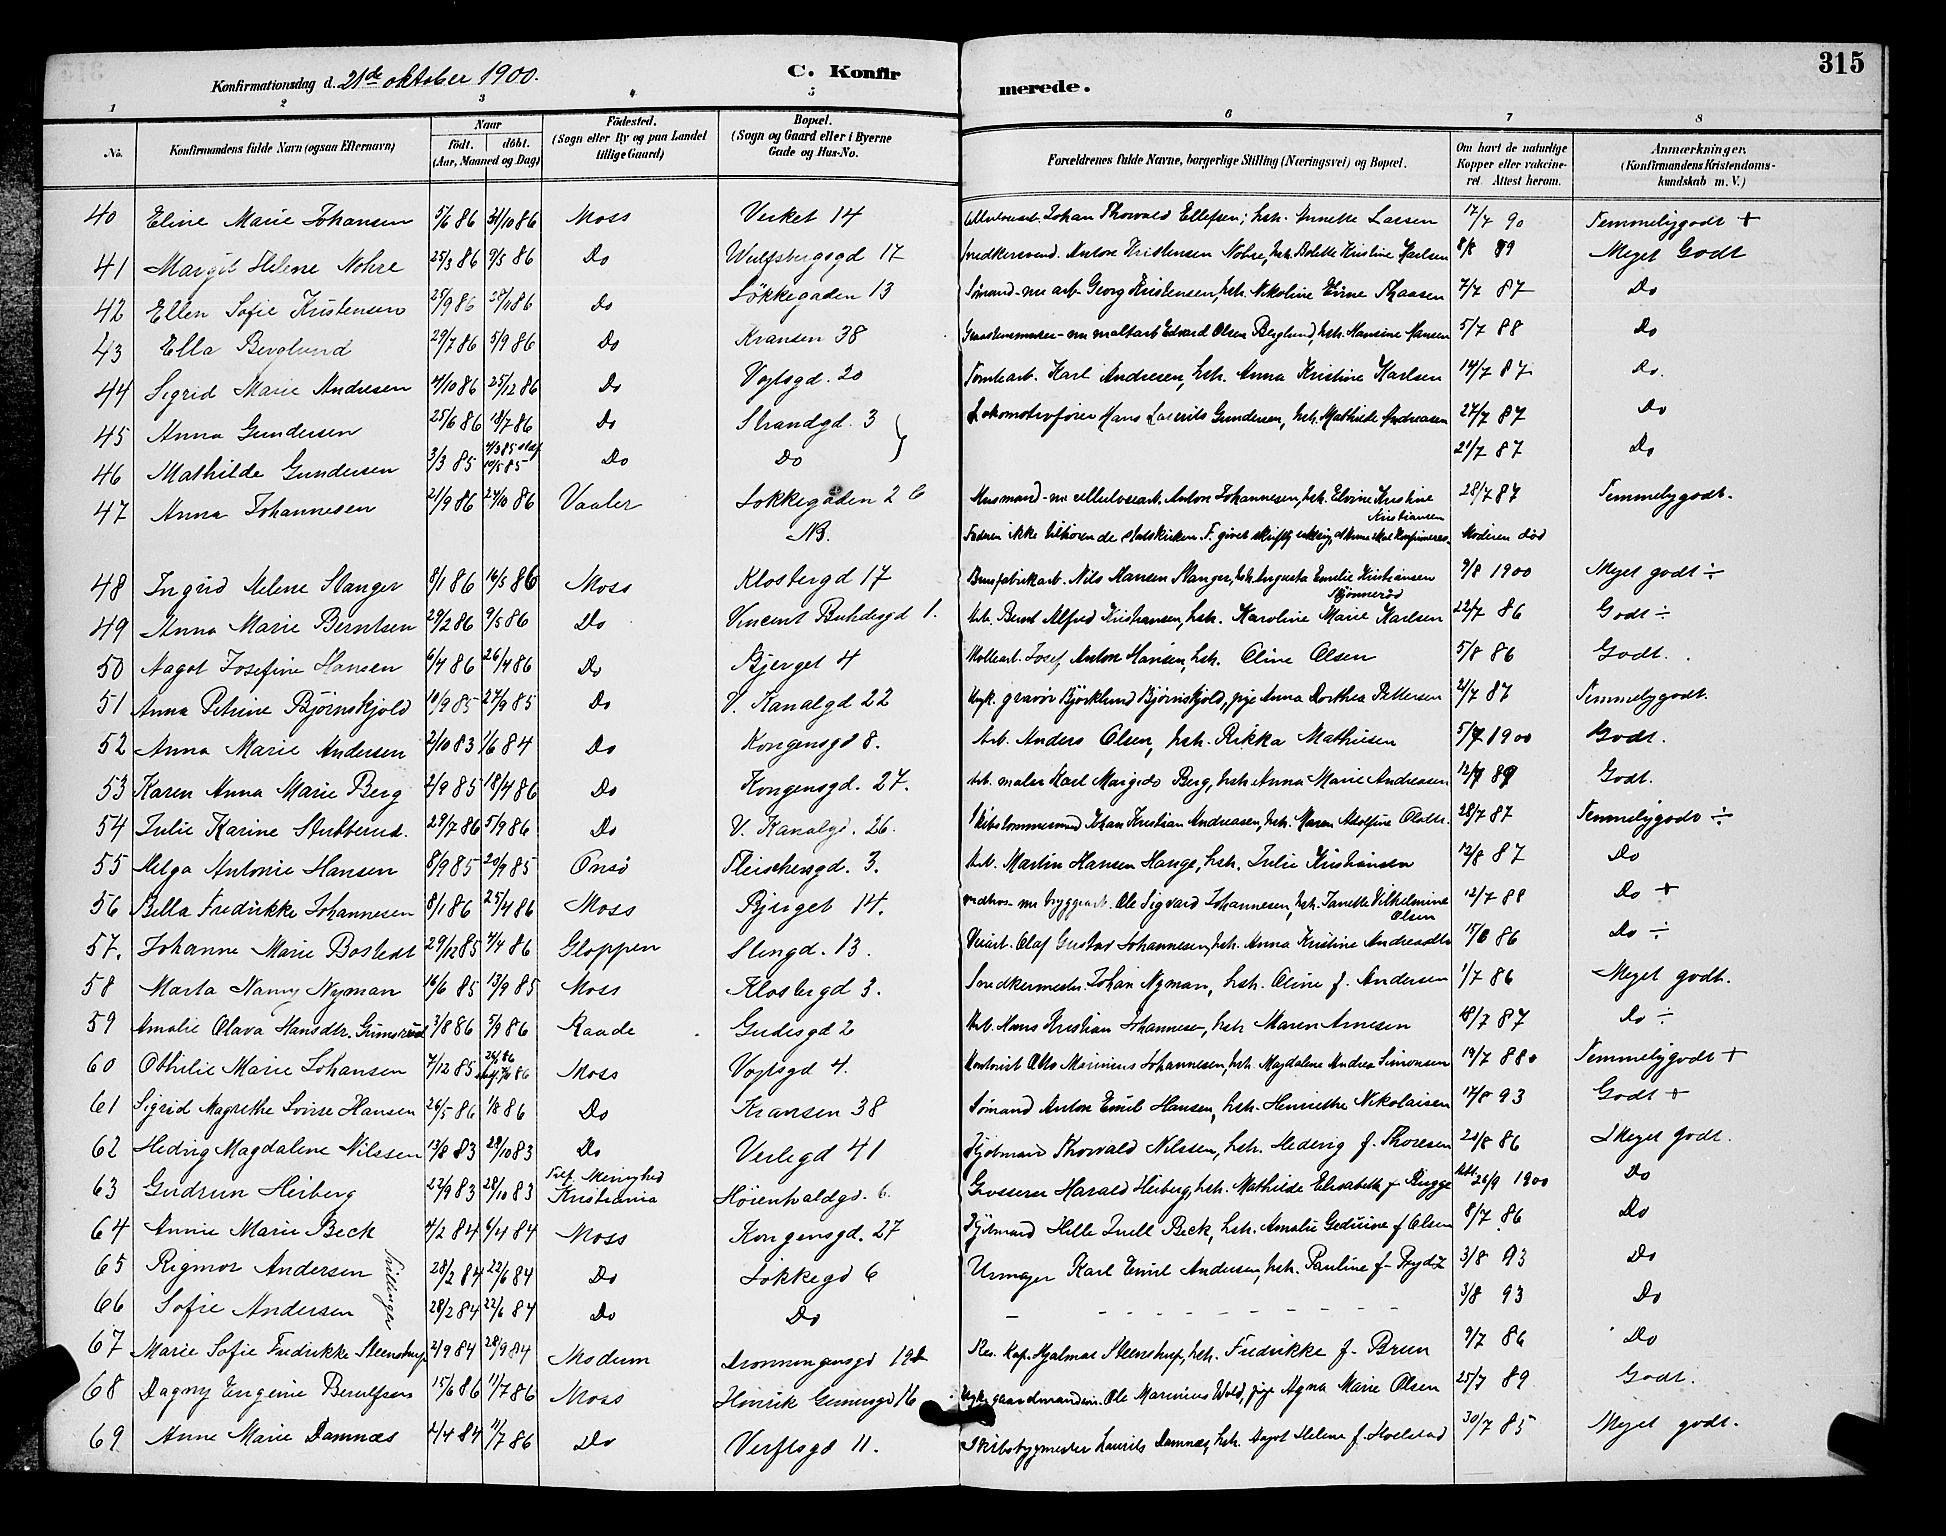 315
Konfirmationsdag d. 21de oktober 1900. C. Konfirmerede.
1 2 3 4 5 6 7 8
No. Konfirmandens fulde Navn (ogsaa Efternavn) Naar født. døbt. (Aar, Maaned og Dag) Fødested. (Sogn eller By og paa Landet tillige Gaard) Bopæl. (Sogn og Gaard eller i Byerne Gade og Hus-No. Forældrenes fulde Navne, borgerlige Stilling (Næringsvei) og Bopæl. Om havt de naturlige Kopper eller vaccineret. Attest herom. Anmærkninger. (Konfirmandens Kristendomskundskab m. V.)
40 Eline Marie Johansen 5/6 86 31/10 86 Moss Verket 14 Johan Thorvald Ellefsen, hstr. Annette Larsen 17/7 90 Temmeligodt +
41 Margit Helene Nohre 25/3 86 9/5 86 Do Wulfsbergsgd 17 Snedkersvend. Anton Kristensen Nohre, hstr. Bolette Kristine Karlsen 8/8 89 Meget Godt
42 Ellen Sofie Kristensen 25/9 86 28/11 86 Do Løkkegaden 13 Sømand - nu arb. Georg Kristensen, hstr. Nikoline Thaasen 7/7 87 Do
43 Ella Berglund 29/7 86 5/9 86 Do Kransen 38 nu maltarb. Edvard Olsen Berglund, hstr. Hansine Hansen 5/7 88 Do
44 Sigrid Marie Andresen 4/10 86 25/12 86 Do Vogtsgd. 20 Tomtearb. Karl Andresen, hstr. Anna Kristine Karlsen 14/7 87 Do.
45 Anna Gundersen 25/6 86 18/7 86 Do Strandgd. 3 Lokomotivfører Hans Lauritz Gundersen, hstr. Mathilde Andreasen 27/7 87 Do
46 Mathilde Gundersen 3/3 85 4/3 85 stadf. 10/5 85 Do Do 21/7 87 Do
47 Anna Johannesen 21/9 86 24/10 86 Vaaler Løkkegaden 26 Husmand - nu cellulosearb. Anton Johannesen, hstr. Elvine Kristine Kristiansen 28/7 87 Temmeligodt.
NB. Faderen ikke tilhørende statskirken. F. givet skriftlig Moderen død
48 Ingrid Helene Slanger 8/1 86 16/5 86 Moss Klostergd 17 Nils Hansen Slanger, hstr. Augusta Emelie Kristiansen 9/8 1900 Meget godt ÷
49 Anna Marie Berntsen 29/2 86 9/5 86 Do Vincent Buddesgd 1. Arb. Bernt Alfred Kristiansen, hstr. Karoline Marie Karlsen 22/7 86 Godt ÷
50 Nagot Josefine Hansen 6/4 86 26/4 86 Do Bjerget 4 Møllearb. Josef Anton Hansen, hstr. Oline Olsen 5/8 86 Godt.
51 Anna Petrine Bjørnskjold 10/9 85 27/9 85 Do V. Kanalgd 22 Ugk. gravør Bjørklund Bjørnskjold, pige Anna Dorthea Pettersen 2/7 87 Temmeligodt.
52 Anna Marie Andersen 2/10 83 1/6 84 Do Kongensgd 8. Arb. Anders Olsen, hstr. Rikka Mathiesen 5/7 1900 Godt.
53 Karen Anna Marie Berg 2/9 85 18/4 86 Do Kongensgd. 27. Arb. maler Karl Berg, hstr. Anna Marie Andreasen 12/7 89 Godt.
54 Julie Karine Stubberud. 29/7 86 5/9 86 Do V. Kanalgd. 26. Skibstømmermand Johan Kristian Andreasen, hstr. Maren Adolfine Olsdtr. 28/7 87 Temmeligodt ÷
55 Helga Antonie Hansen 8/9 85 20/9 85 Onsø Fleischersgd. 3. Arb. Martin Hansen Hauge, hstr. Julie Kristiansen 12/8 87 Do
56 Bella Fredrikke Johannesen 8/1 86 25/4 86 Moss Bjerget 14. nu bryggearb. Ole Sigvard Johannesen, hstr. Janette Vilhelmine Olsen 12/7 88 Do +
57. Johanne Marie Bostedt 29/12 85 4/4 86 Gloppen Stengd. 13. Olaf Gustav Johannesen, hstr. Anna Kristine Andreasdtr 15/6 86 Do ÷
58 Marta Nanny Nyman 16/6 85 13/9 85 Moss Klostergd 3. Snedkermester Johan Nyman, hstr. Oline f. Andersen 1/7 86 Meget godt.
59 Amalie Olava Hansdtr. Grimsrud 3/8 86 5/9 86 Raade Gudesgd 2 Arb. Hans Kristian Johannesen, hstr Maren Arnesen 18/7 87 Do ÷
60 Othilie Marie Johansen 7/12 85 Moss Vogtsgd 4. Kontorist Otto Marinius Johannesen, hstr. Magdalene Andrea Simonsen 19/7 88 Temmeligodt +
61 Sigrid Magrethe Lovise Hansen 26/5 86 1/8 86 Do Kransen 38 Sømand Anton Emil Hansen, hstr. Henriette Nikolaisen 17/8 93 Godt +
62 Hedvig Magdalene Nilssen 13/8 83 28/10 83 Do Verlegd 41 Kjøbmand Thorvald Nilssen, hstr. Hedevig f. Thoresen 20/8 86 Meget godt.
63 Gudrun Heiberg 22/9 83 28/10 83 Kristiania Høienhaldgd. 6. Grosserer Harald Heiberg, hstr. Mathilde Elisabeth f Brygge Att. 26/9 1900 Do
64 Annie Marie Beck 4/2 84 6/4 84 Moss Kongensgd. 27 Kjøbmand Helle Juell Beck, hstr. Amalie Gedsine f Olsen 8/7 86 Do
65 Rigmor Andersen 28/2 84 22/6 84 Do Løkkegd 6 Urmager Karl Emil Andersen, hstr. Pauline f. Prydz 3/8 93 Do
Tvillinger
66 Sofie Andersen 28/2 84 22/6 84 Do Do 3/8 93 Do
67 Marie Sofie Fredrikke Steenstrup 2/9 84 28/9 84 Modum Dronningensgd 19 Res. Kap. Hjalmar Steenstrup, hstr. Fredrikke f. Bruun 9/7 86 Do
68 Dagny Eugenie Berulfsen 15/6 86 11/7 86 Moss Henrik Gernersgd 16 Ole Marinius Wold, pige Agna Marie Olsen 25/7 89 Godt.
69 Anne Marie Damnæs 2/4 84 11/7 86 Do Verftsgd 11. Skibsbygmester Laurits Damnæs, hstr. Nagot Helene f. Hoelstad 30/7 85 Meget godt.